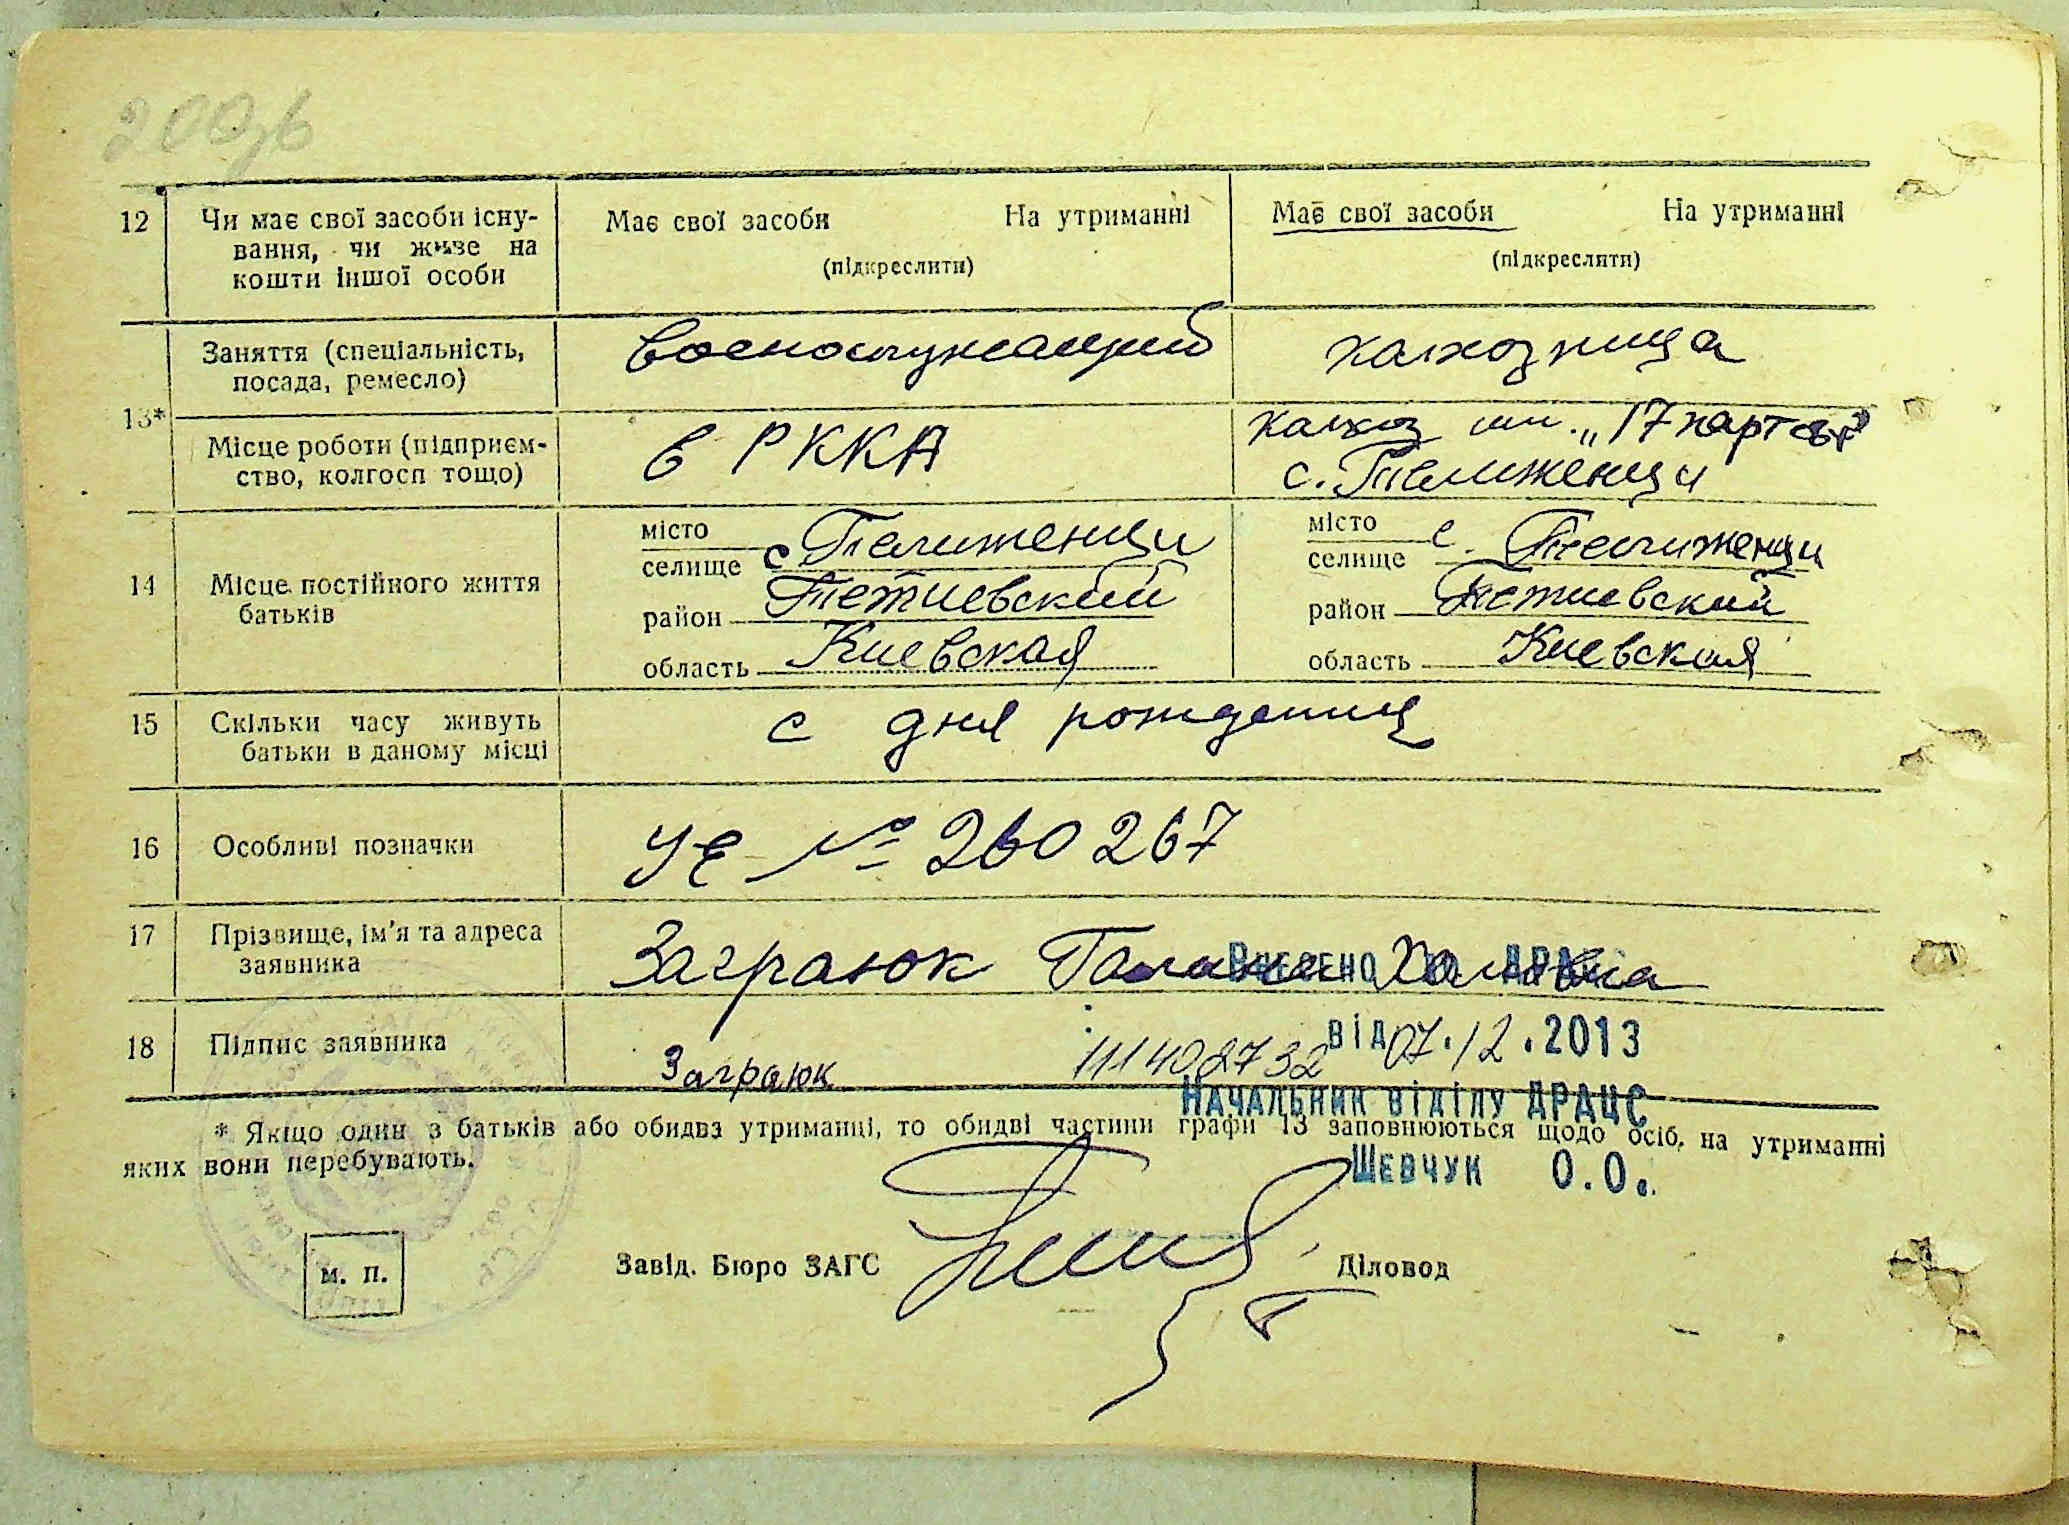 200зв
12 Чи має свої засоби існу- Має свої засоби На утриманні Має свої засоби На утриманні
вання, чи живе на (підкреслити) (підкреслити)
кошти іншої особи
Заняття (спеціальність, военослужащий колхозница
посада, ремесло)
13*
Місце роботи (підприєм- в РККА колхоз им. „17 партсъ
ство, колгосп тощо) с. Телиженци
14 Місце постійного життя батьків
місто селище с Телиженци місто селище с. Телиженци
район Тетиевский район Тетиевский
область Киевская область Киевская
15 Скільки часу живуть с дня рождения
батьки в даному місці
16 Особливі позначки УЕ № 260267
17 Прізвище, ім'я та адреса Заграюк
заявника
Внесено ДРАЦС
18 Підпис заявника Заграюк 111408732 від 07.12.2013
Начальник відділу ДРАЦС
* Якщо один з батьків або обидва утриманці, то обидві частини графи 13 заповнюються щодо осіб, на утриманні
яких вони перебувають.
Шевчук О.О.
м. п. Завід. Бюро ЗАГС Діловод